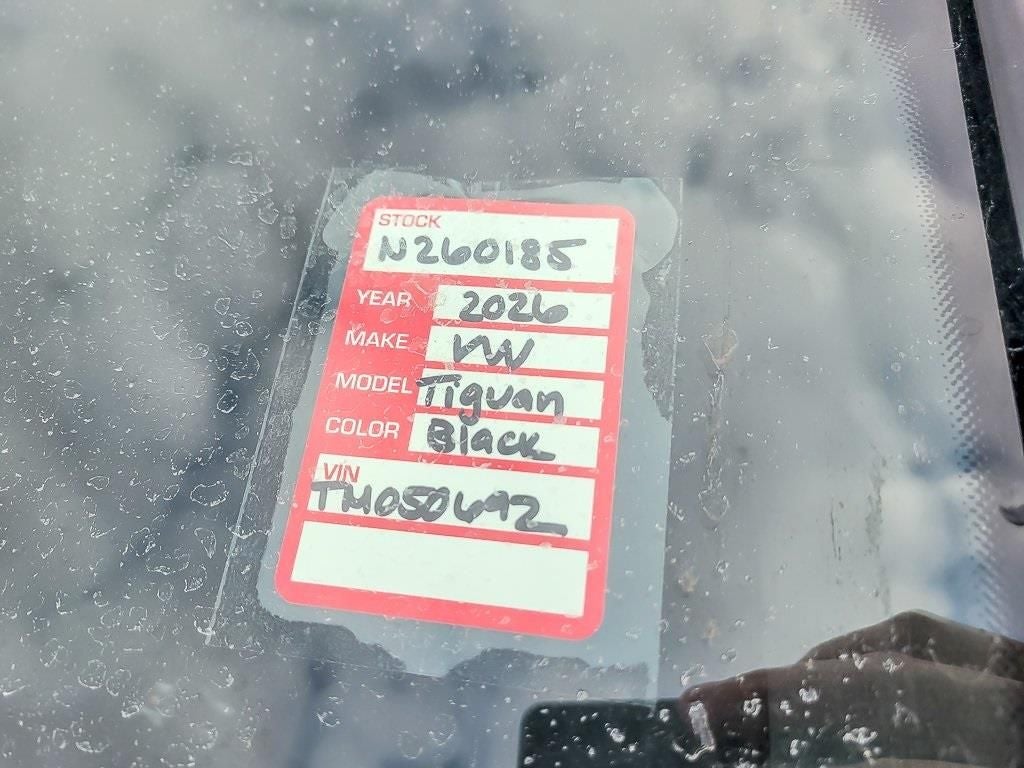 STOCK
N260185
YEAR 2026
MAKE VW
MODEL Tiguan
COLOR Black
VIN
TM050692